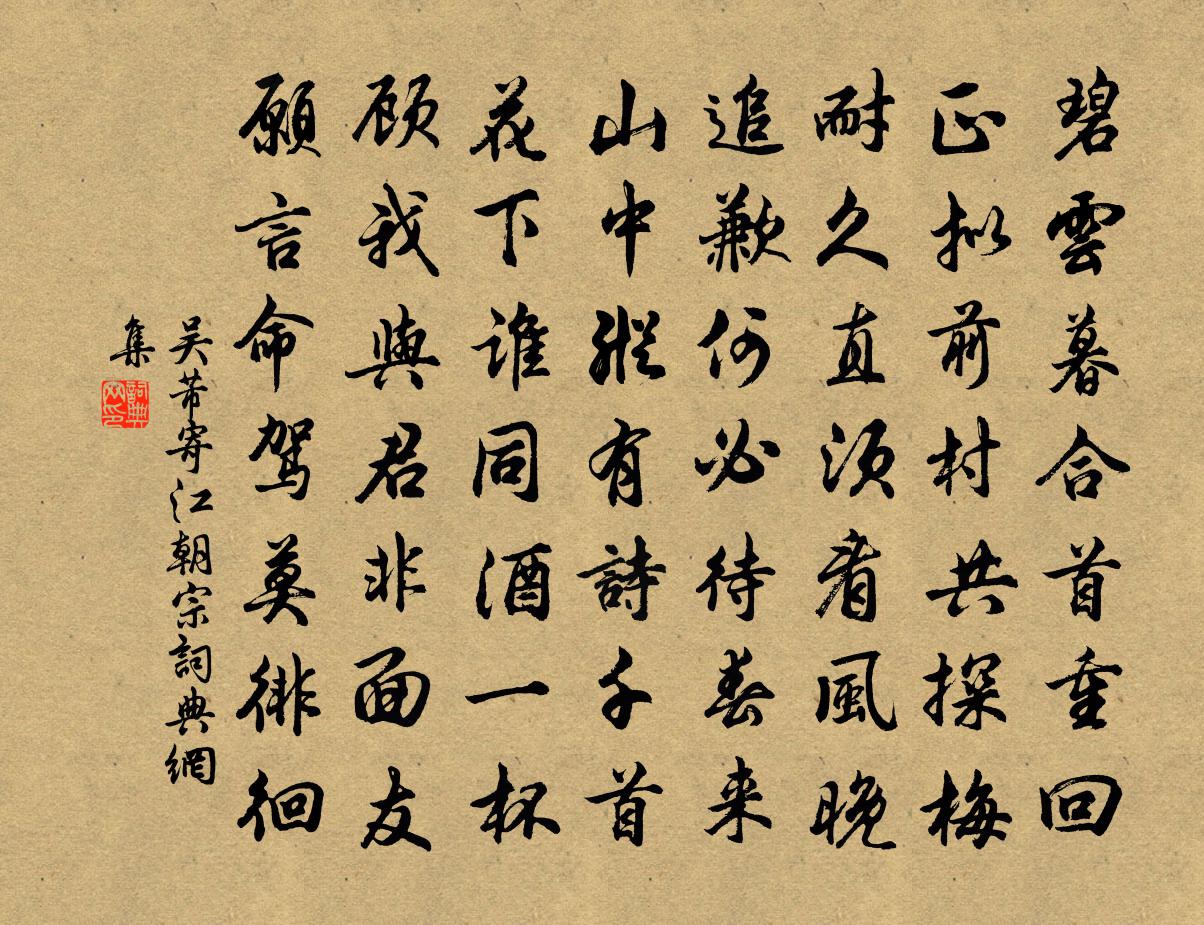 碧雲暮合首重回
正拟前村共探梅
耐久直須看風晚
追歉何必待春来
山中縱有詩千首
花下谁同酒一杯
顾我與君非面友
願言命駕莫徘徊
吴芾寄江朝宗詞典網
集
詞典
网印